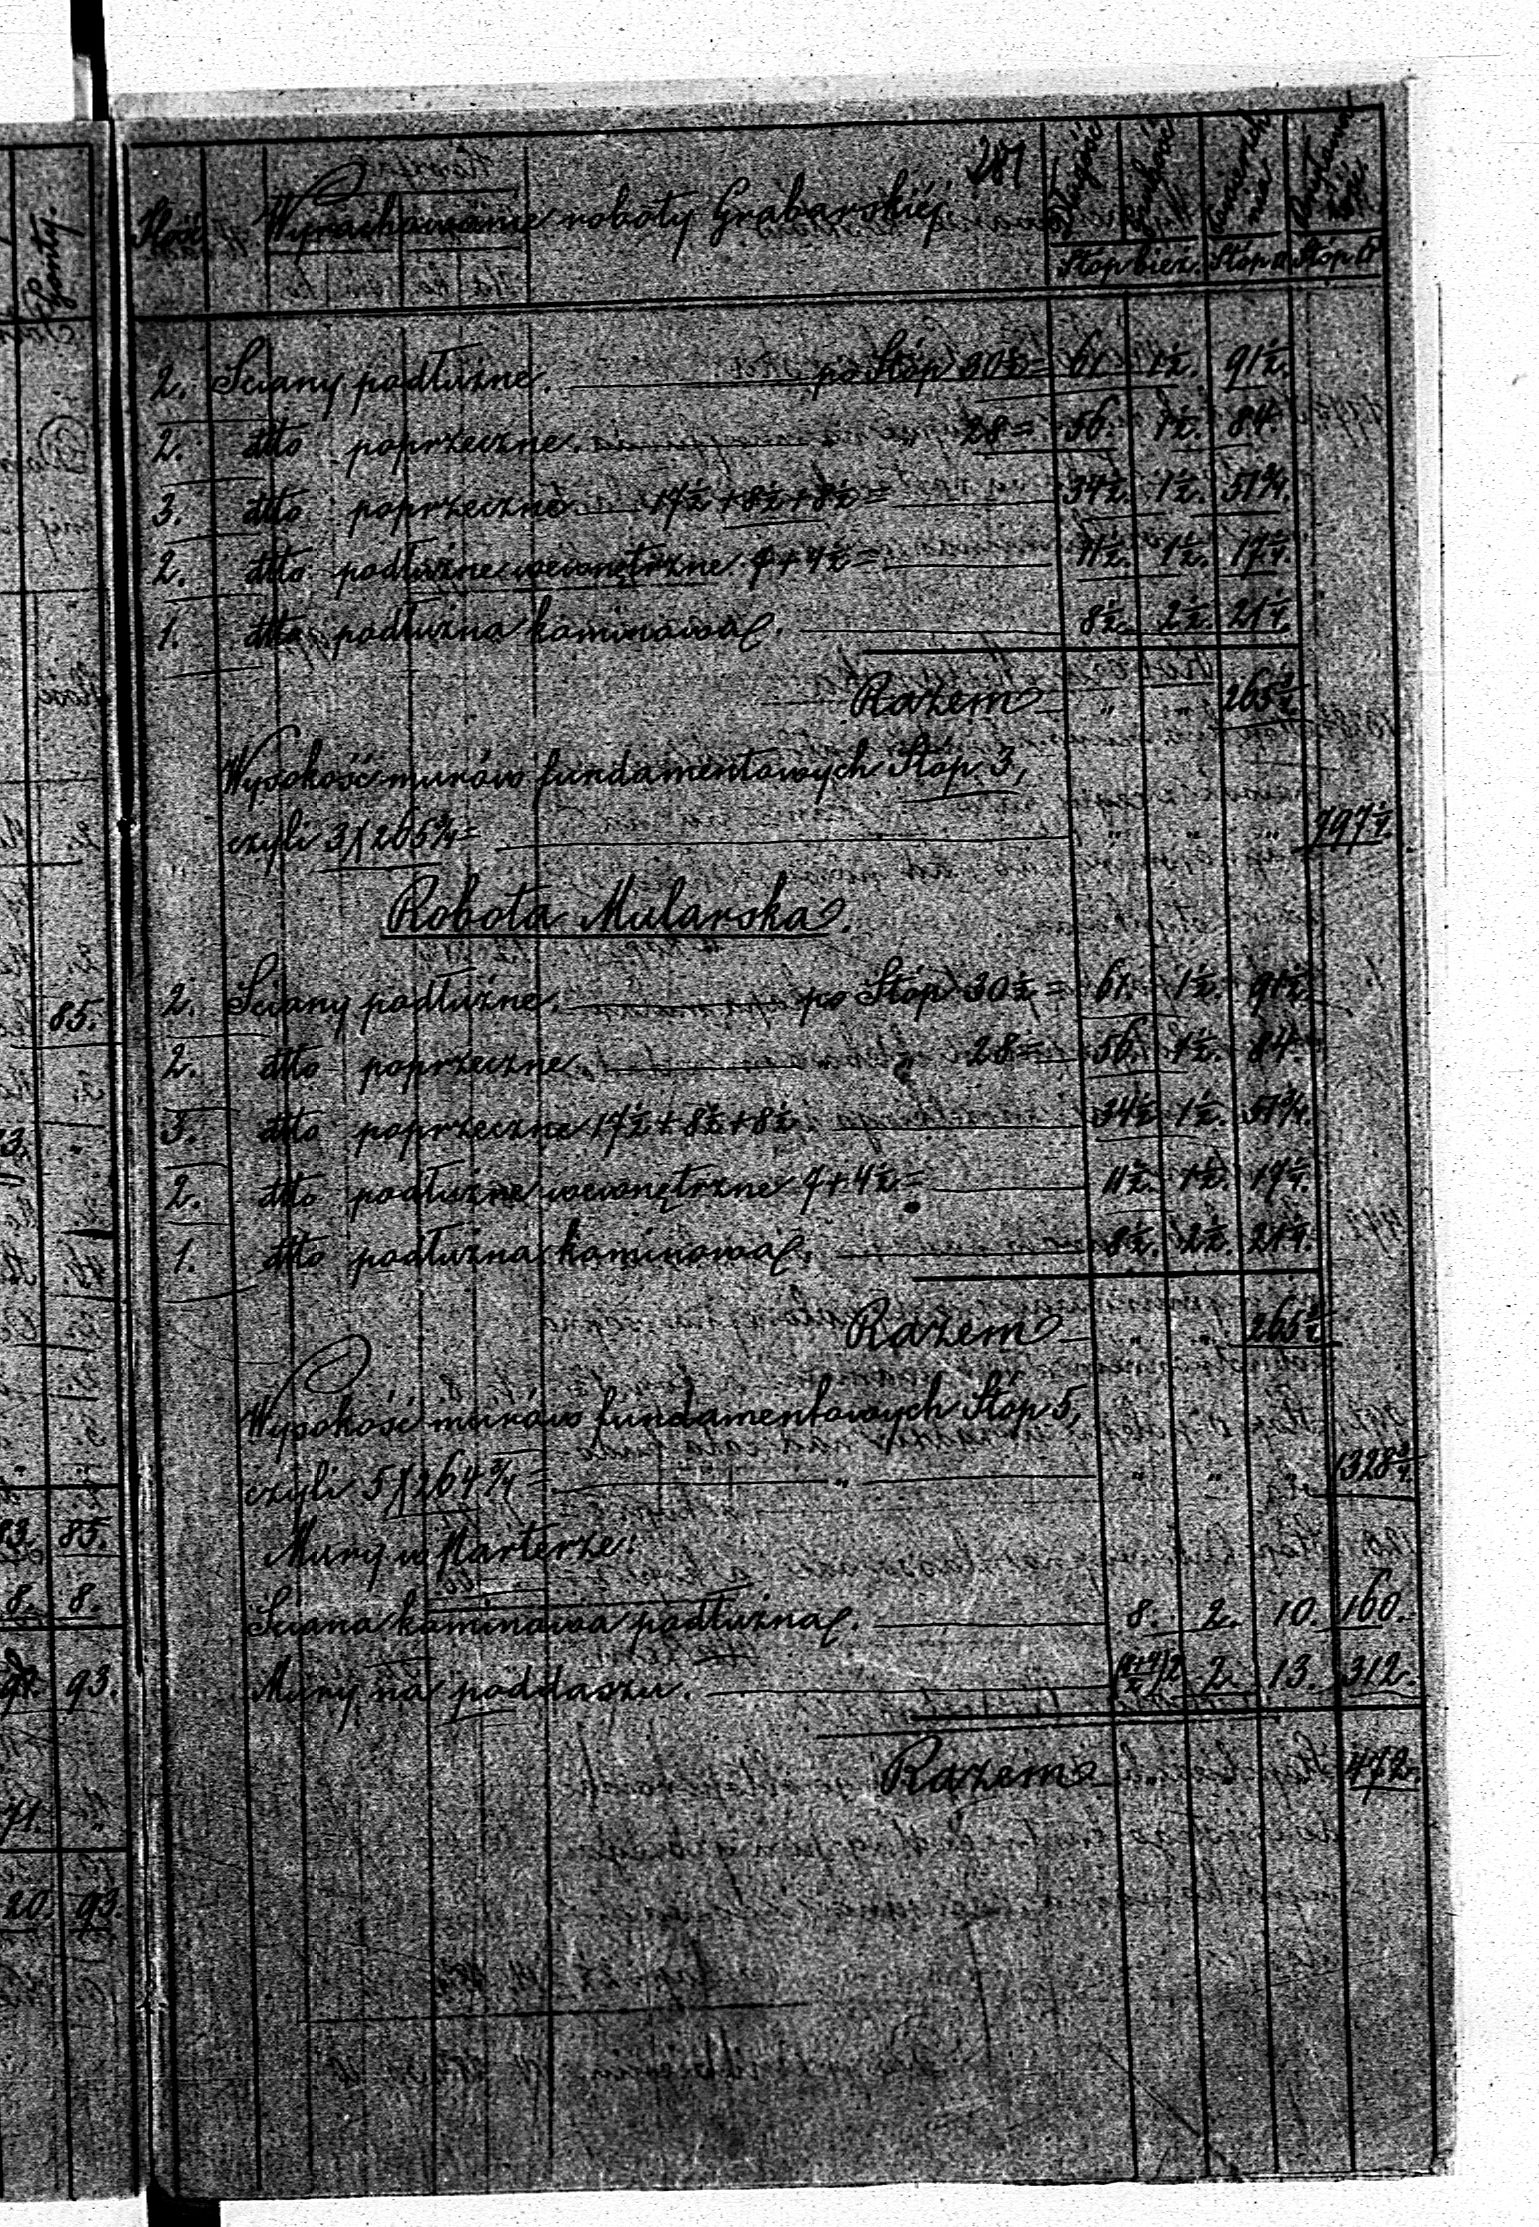 281
Ilość Wyrachowanie roboty Grabarskiéj. Długość Grubość
Stóp bież. Stóp □ Stóp
2. Sciany podłużne. po Stóp 30½ = 61. 1½. 91½.
2. dtto poprzeczne. 28 = 56. 1½. 84.
3. dtto poprzeczne 17½ + 8½ + 8½ = 34½. 1½. 51¾.
2. dtto podłużne wewnętrzne 7 + 4½ = 11½. 1½. 17¼.
1. dtto podłużna kominowa. 8½. 2½. 21¼.
Razem " " 265¾
Wysokość murów fundamentowych Stóp 3,
czyli 3 × 265¾ = " " " 797¼.
Robota Mularska.
2. Sciany podłużne. po Stóp 30½ = 61. 1½. 91½.
2. dtto poprzeczne. " 28 = 56. 1½. 84.
3. dtto poprzeczne 17½ + 8½ + 8½. 34½ 1½. 51¾.
2. dtto podłużne wewnętrzne 7 + 4½ = 11½. 1½. 17¼.
1. dtto podłużna kominowa. 8½. 2½. 21¼.
Razem " " 265¾
Wysokość murów fundamentowych Stóp 5,
czyli 5 × 264¾ = " " " " 1328¾.
Mury w Parterze:
Sciana kominowa podłużna. 8. 2. 10. 160.
Mury na poddaszu. 2. 13. 312.
Razem " " 472.
Punty.
85.
3.
83. 85.
8. 8.
93.
71. "
20. 93.